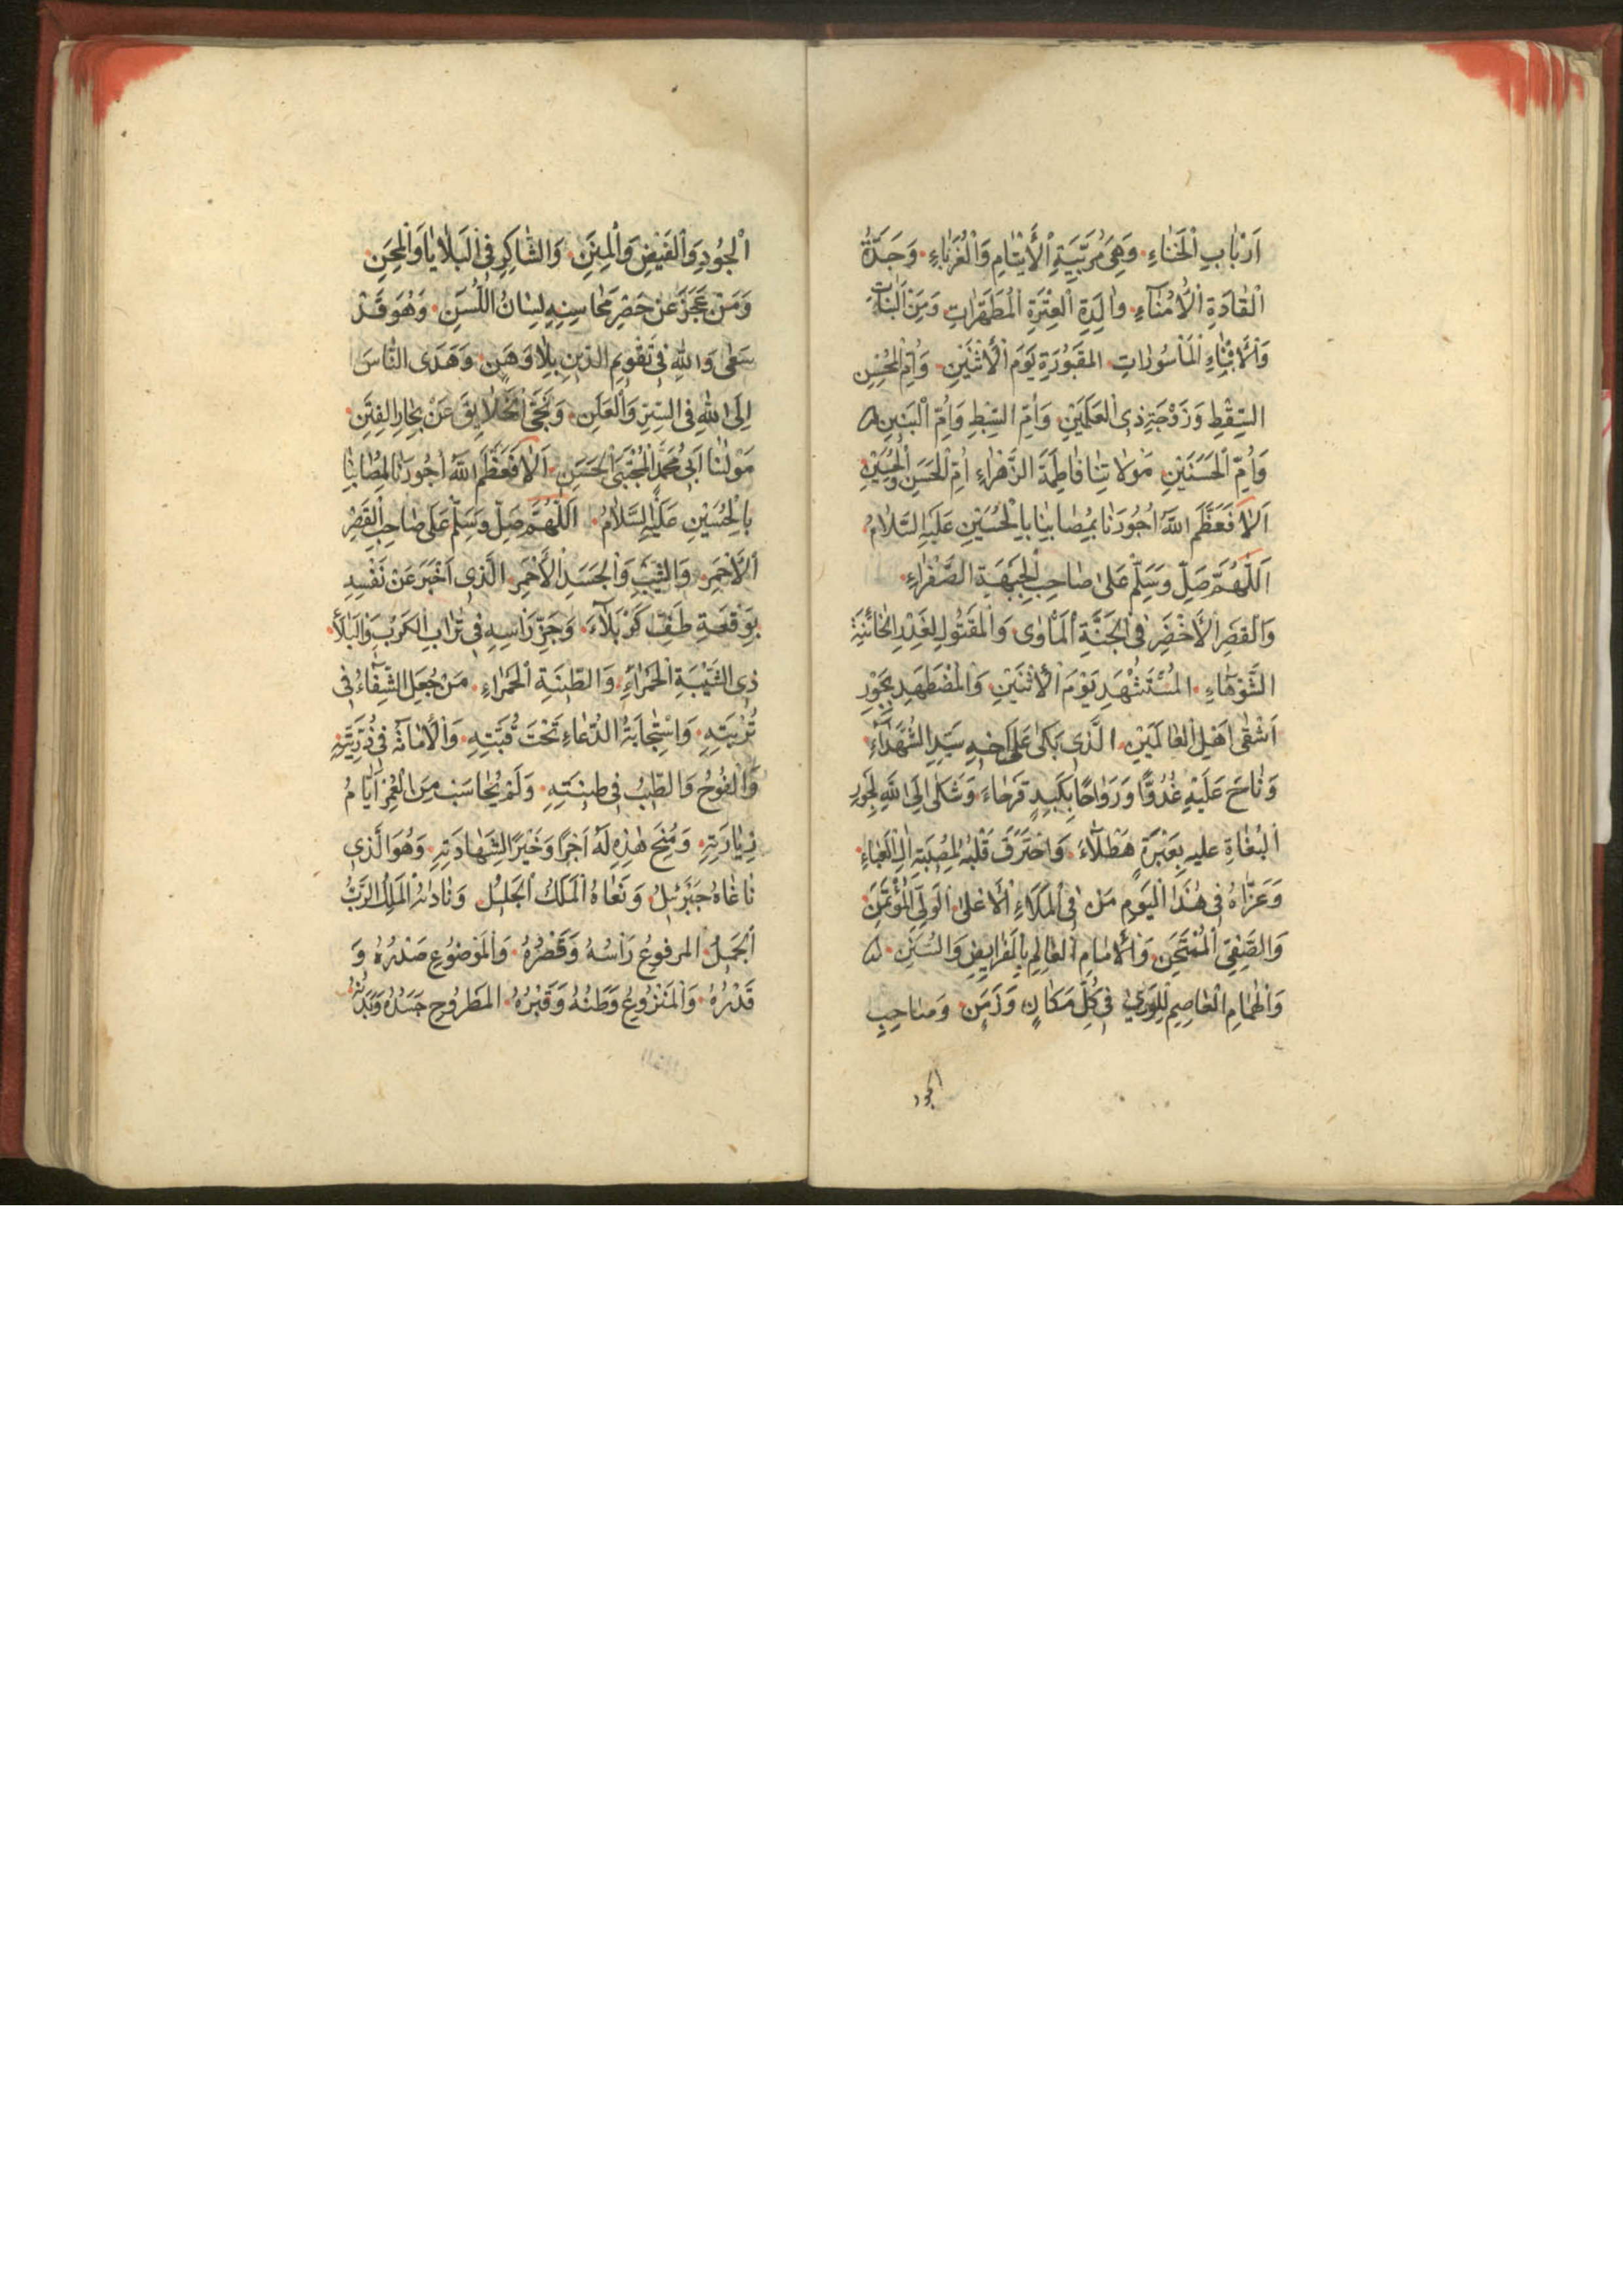 اَرْبَابِ الْخَنَاءِ وَهِيَ مُرَبِّيَةِ الْأَيْتَامِ وَالْغُرَبَاءِ وَجَدَّةُ
الْقَادَةِ الْأُمَنَآءِ وَالِدَةِ الْعِتْرَةِ الْمُطَهَّرَاتِ وَمِنَ الْبَنَاتِ
وَالْأَبْنَاءِ الْمَأْسُورَاتِ المَقْبُورَةِ يَوْمَ الْأَثْنَيْنِ وَأُمِّ الْمُحْسِنِ
السِّقْطِ وَزَوْجَةِ ذِي الْعَلَمَيْنِ وَأُمِّ السِّبْطِ وَأُمِّ الْبَنِينِ
وَأُمِّ الْحَسَنَيْنِ مَوْلَاتِنَا فَاطِمَةَ الزَّهْرَاءِ أُمِّ الْحَسَنِ وَالْحُسَيْنِ
اَلَا فَعَظَّمَ اللَّهُ أُجُورَنَا بِمُصَابِنَا بِالْحُسَيْنِ عَلَيْهِ السَّلَامُ
اَللّٰهُمَّ صَلِّ وَسَلِّمْ عَلَى صَاحِبِ الْجَبْهَةِ الصَّفْرَاءِ
وَالْقَصْرِ الْأَخْضَرِ فِي الْجَنَّةِ الْمَأْوَى وَالْمَقْتُولِ لِغَدْرِ الْخَائِنَةِ
الشَّوْهَاءِ المُسْتَشْهَدِ يَوْمَ الْأَثْنَيْنِ وَالْمُضْطَهَدِ بِجَوْرِ
اَشْقَى اَهْلِ الْعَالَمَيْنِ الَّذِي بَكَى عَلَى اَخِيهِ سَيِّدِ الشُّهَدَآءِ
وَنَاحَ عَلَيْهِ غُدُوًّا وَرَوَاحًا بِكَبِدٍ قَرْحَاءَ وَشَكَى اِلَى اللّٰهِ لِجَوْرِ
الْبُغَاةِ عليه بِعَبْرَةٍ هَطْلَآءَ وَاحْتَرَقَ قَلْبُهُ لِمُصِيبَةِ اٰلِ الْعَبَاءِ
وَعَزَّاهُ فِي هٰذَا الْيَوْمِ مَنْ فِي الْمَلَاءِ الْأَعْلَى الْوَلِيِّ الْمُؤْتَمَنِ
وَالصَّفِيِّ الْمُمْتَحَنِ وَالْأِمَامِ الْعَالِمِ بِالْفَرَايِضِ وَالسُّنَنِ
وَالْهُمَامِ الْعَاصِمِ لِلْوَرٰى فِي كُلِّ مَكَانٍ وَزَمَنٍ وَصَاحِبِ
الجود
الْجُودِ وَالْفَيْضِ وَالْمِنَنِ وَالشَّاكِرِ فِي الْبَلَايَا وَالْمِحَنِ
وَمَنْ عَجَزَ عَنْ حَصْرِ مَحَاسِنِهِ لِسَانُ اللَّسَنِ وَهُوَ قَدْ
سَعَى وَاللّٰهِ فِي تَقْوِيمِ الدِّينِ بِلَا وَهَنٍ وَهَدَى النَّاسَ
اِلَى اللّٰهِ فِي السِّرِّ وَالْعَلَنِ وَنَجَّى الْخَلَايِقَ عَنْ بِحَارِ الْفِتَنِ
مَوْلٰنَا اَبِي مُحَمَّدٍ الْمُجْتَبَى الْحَسَنِ اَلَا فَعَظَّمَ اللَّهُ أُجُورَنَا لِمُصَابِنَا
بِالْحُسَيْنِ عَلَيْهِ السَّلَامُ اَللّٰهُمَّ صَلِّ وَسَلِّمْ عَلَى صَاحِبِ الْقَصْرِ
الْأَحْمَرِ وَالشَّيْبِ وَالْجَسَدِ الْأَحْمَرِ الَّذِي اَخْبَرَ عَنْ نَفْسِهِ
بِوَقْعَةِ طَفِّ كَرْبَلَآءَ وَجَزِّ رَاْسِهِ فِي تُرَابِ الْكَرْبِ وَالْبَلَا
ذِي الشَّيْبَةِ الْحَمْرَاءِ وَالطِّينَةِ الْحَمْرَاءِ مَنْ جُعِلَ الشِّفَاءُ فِي
تُرْبَتِهِ وَاسْتِجَابَةُ الدُّعَاءِ تَحْتَ قُبَّتِهِ وَالْأَمَانَةُ فِي ذُرِّيَّتِهِ
وَالْفُوحُ وَالطِّيبُ فِي طِينَتِهِ وَلَمْ يُحَاسَبْ مِنَ الْعُمْرِ اَيَّامُ
زِيَارَتِهِ وَمُنِحَ هٰذِهِ لَهُ اَجْرًا وَخَيْرًا لِشَهَادَتِهِ وَهُوَ الَّذِي
نَاغَاهُ جَبْرَئِيلُ وَنَعَاهُ الْمَلَكُ الْجَلِيلُ وَنَادَاهُ الْمَلِكُ الرَّبُّ
الْجَمِيلُ المرفوعُ رَاْسُهُ وَقَصْرُهُ وَالْمَوْضُوعِ صَدْرُهُ وَ
قَدْرُهُ وَالْمَنْزُوعُ وَطَنُهُ وَقَبْرُهُ المَطْرُوحِ جَسَدُهُ وَبَدَنُهُ